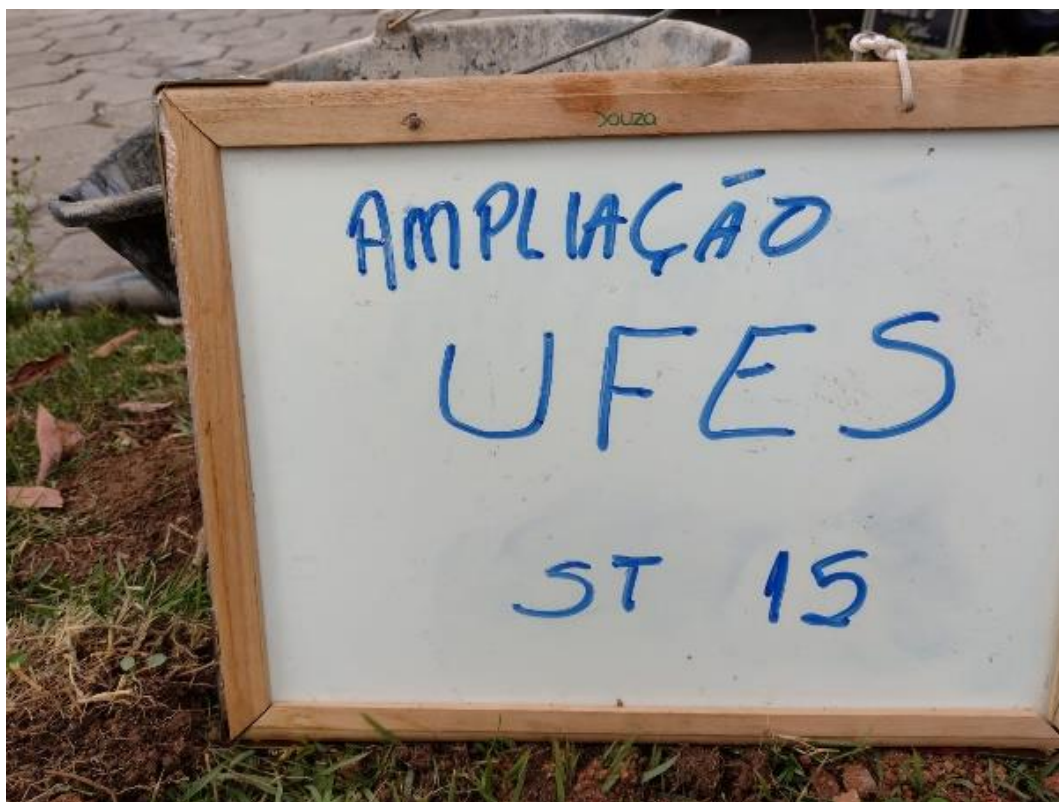 Souza
AMPLIAÇÃO
UFES
ST 15